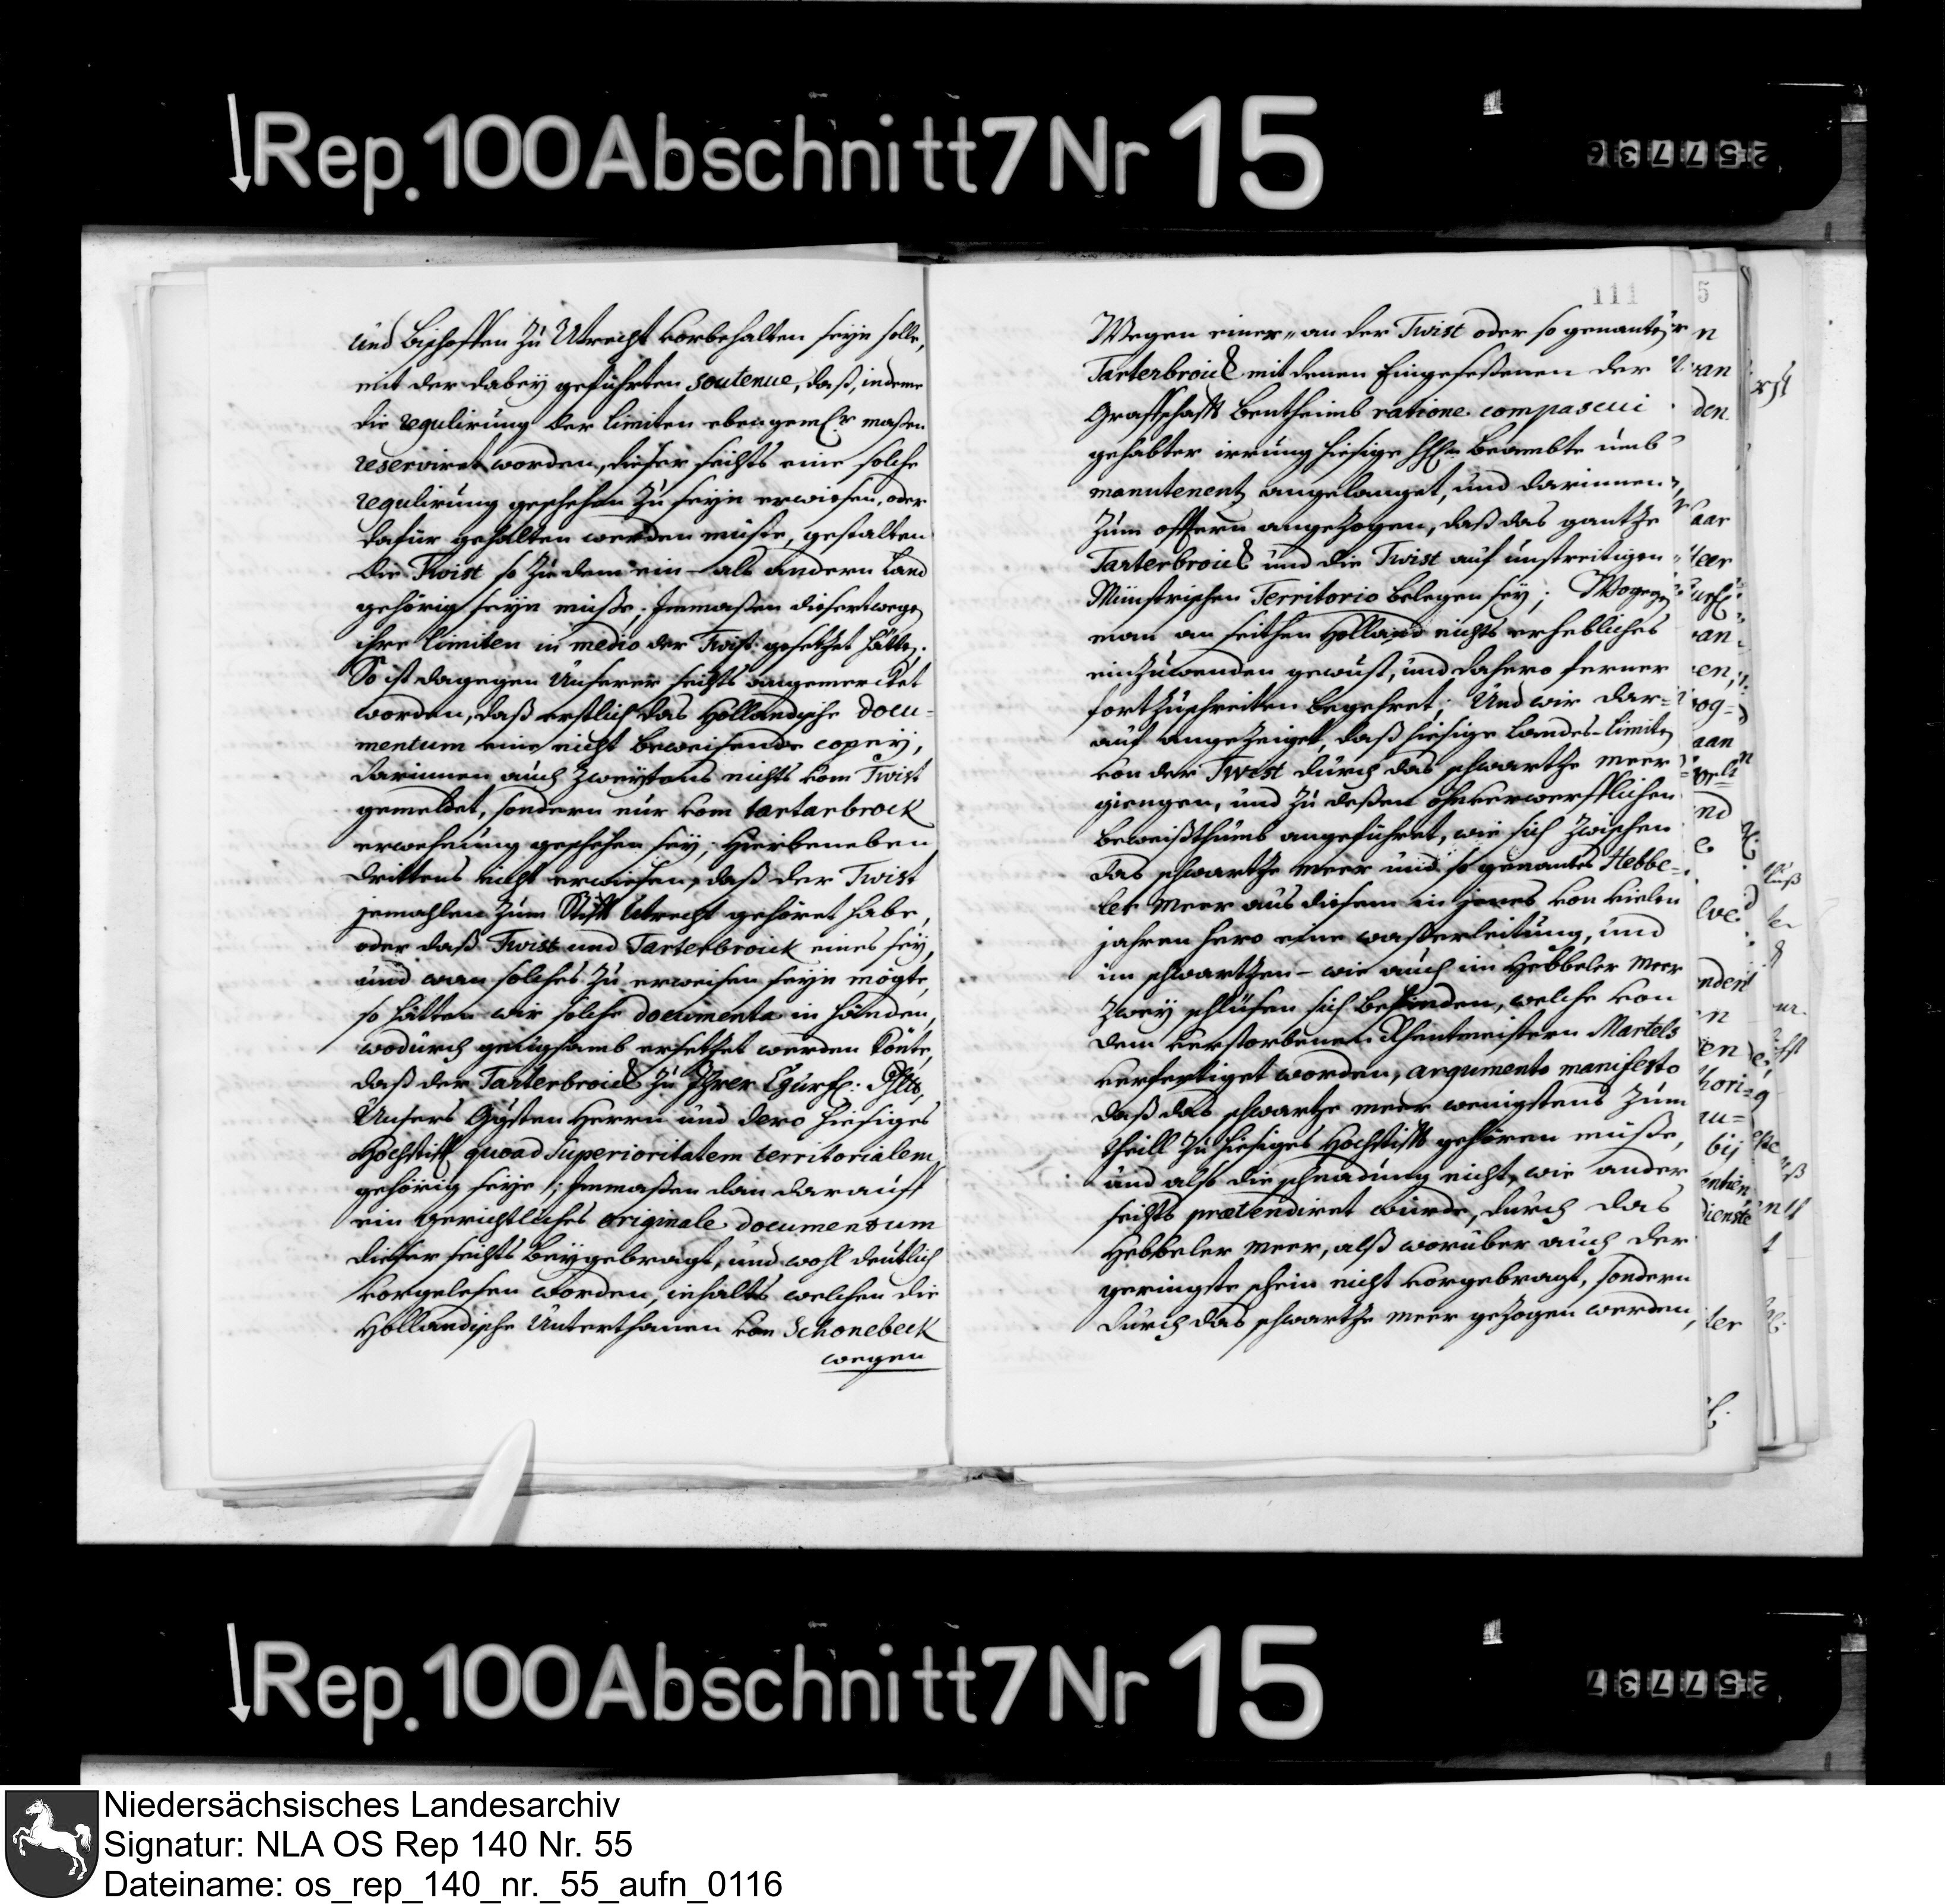 Rep. 100 Abschnitt 7 Nr 15
257736
und Bischoffen zu Utrecht vorbehalten seyn solle,
mit der dabey geführten soutenue, daß, indeme
die regulirung der limiten eben gemr. maßen
reserviret worden, dieser seiths eine solche
regulirung geschehen zu seyn erwiesen, oder
dafür gehalten werden müste, gestalten
die Twist so zu dem ein- als andern Land
gehörig seyn müste; Immaßen diesertwegen
ihre limiten in medio der Twist gesetzet hätten.
So ist dagegen Unserer seiths angemercket
worden, daß erstlich das Holländische docu-
mentum eine nicht beweisende copeij,
darinnen auch Zweytens nichts vom Twist
gemeldet, sondern nur vom tartarbrock
erwehnung geschehen sey; Hierbeneben
drittens nicht erwiesen, daß der Twist
jemahlen zum Stifft Utrecht gehöret habe,
oder daß Twist und Tarterbroick eines sey,
und wan solches zu erweisen seyn mögte,
so hätten wir solche documenta in Händen,
wodurch gnugsamb ersetzet werden könte,
daß der Tarterbroick zu Ihrer Churf: Dhltt,
Unsers Ggsten Herrn und dero hiesiges
Hochstifft quoad Superioritatem territorialem
gehörig seye; Immaßen dan darauff
ein gerichtliches originale documentum
dieser seiths beygebragt, und wohl deutlich
vorgelesen worden, inhalts welchen die
Holländische Unterthanen von Schonebeck
wegen
111
Wegen einer an der Twist oder so genanten
Tarterbroick mit denen Eingeseßenen der
Graffschafft Bentheimb ratione compascui
gehabter irrung hiesige Beambte umb
manutenentz angelanget, und darinnen
zum offtern angezogen, daß das gantze
Tarterbroick und die Twist auf unstreitigen
Münstrischen Territorio belegen sey; Wogegen
man an seithen Holland nichts erhebliches
einzuwenden gewust, und dahero ferner
fortzuschreiten begehret; Und wir dar-
auf angezeiget, daß hiesige Landes-limiten
von der Twist durch das schwartze meer
giengen, und zu deßen ohnverwerfflichen
beweißthumb angeführet, wie sich zwischen
das schwartze meer und so genantes Hebbe-
ler Meer aus diesem in jenes von vielen
jahren hero eine waßerleitung, und
im schwartzen- wie auch im Hebbeler Meer
Zwey schlüsen sich befinden, welche von
dem verstorbenen Rhentmeistern Martels
verfertiget worden, argumento manifesto
daß das schwartze meer wenigstens zum
theill zu hiesiges Hochstifft gehören müste,
und also die scheadung nicht, wie ander
seiths prætendiret würde, durch das
Hebbeler Meer, alß worüber auch der
geringste schein nicht vorgebragt, sondern
durch das schwartze meer gezogen werden,
Rep. 100 Abschnitt 7 Nr 15
257737
Niedersächsisches Landesarchiv
Signatur: NLA OS Rep 140 Nr. 55
Dateiname: os_rep_140_nr._55_aufn_0116